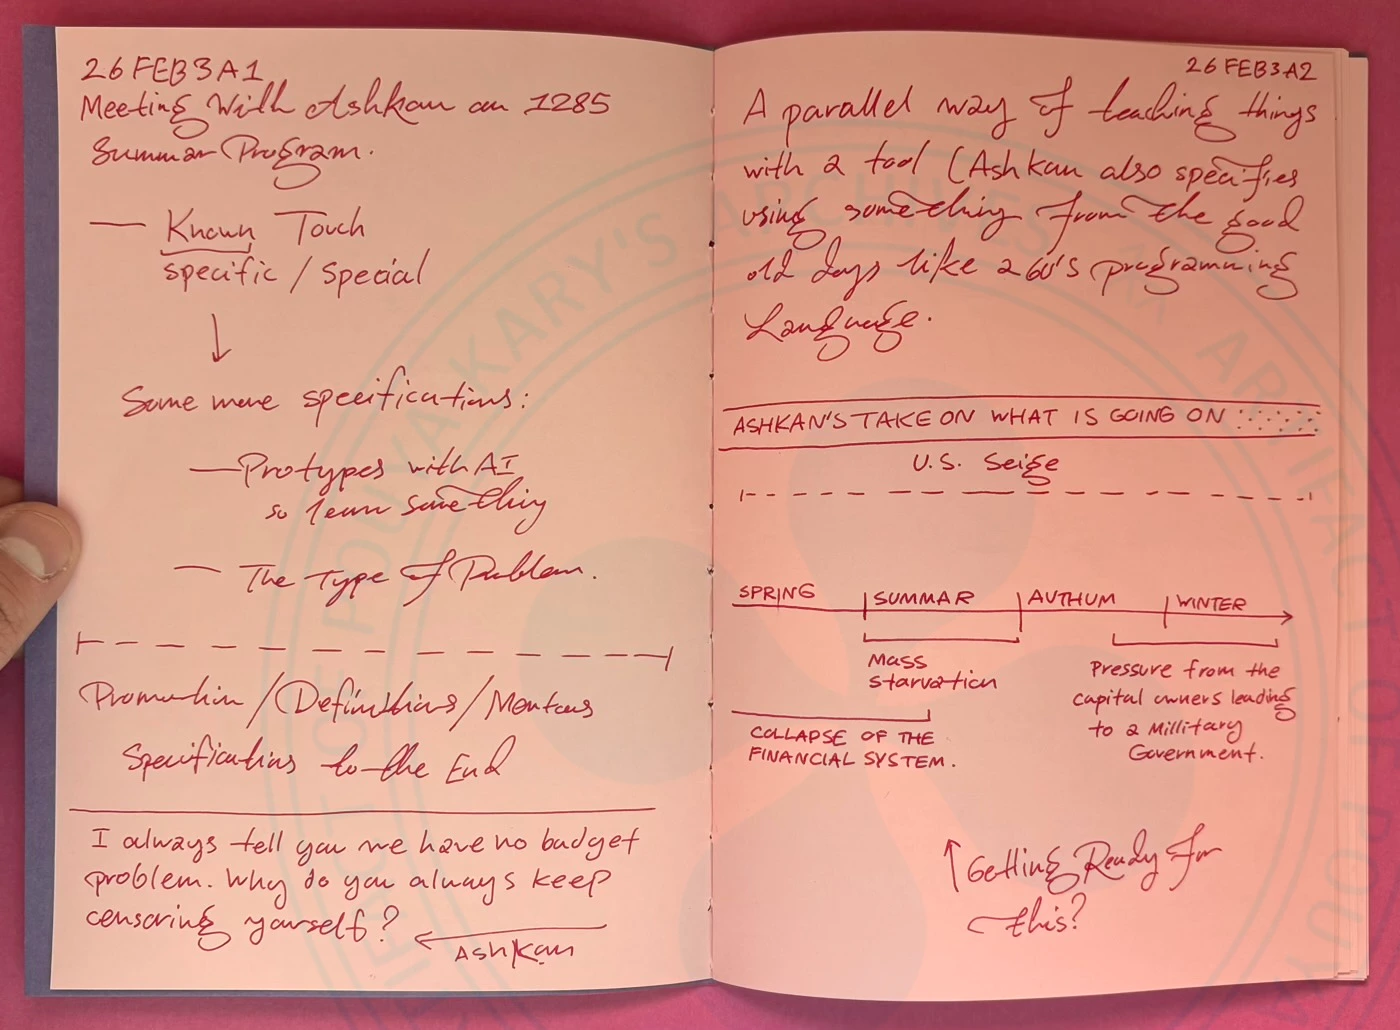 26 FEB 3 A1
Meeting With Ashkan on 1285
Summar Program.
— Known Touch
specific / Special
Some more specifications:
— Protypes with AI
so learn something
— The Type of Problem.
Promotion / Definitions / Mentors
Specifications to the End
I always tell you we have no budget
problem. Why do you always keep
censoring yourself?
Ashkan
26 FEB 3 A2
A parallel way of teaching things
with a tool (Ashkan also specifies
using something from the good
old days like a 60's programming
Language.
ASHKAN'S TAKE ON WHAT IS GOING ON
U.S. Seige
SPRING SUMMAR AUTHUM WINTER
Mass
starvation
COLLAPSE OF THE
FINANCIAL SYSTEM.
Pressure from the
capital owners leading
to a Millitary
Government.
Getting Ready For
this?
ARTIFACT OF POUYAKARY'S ARCHIVES